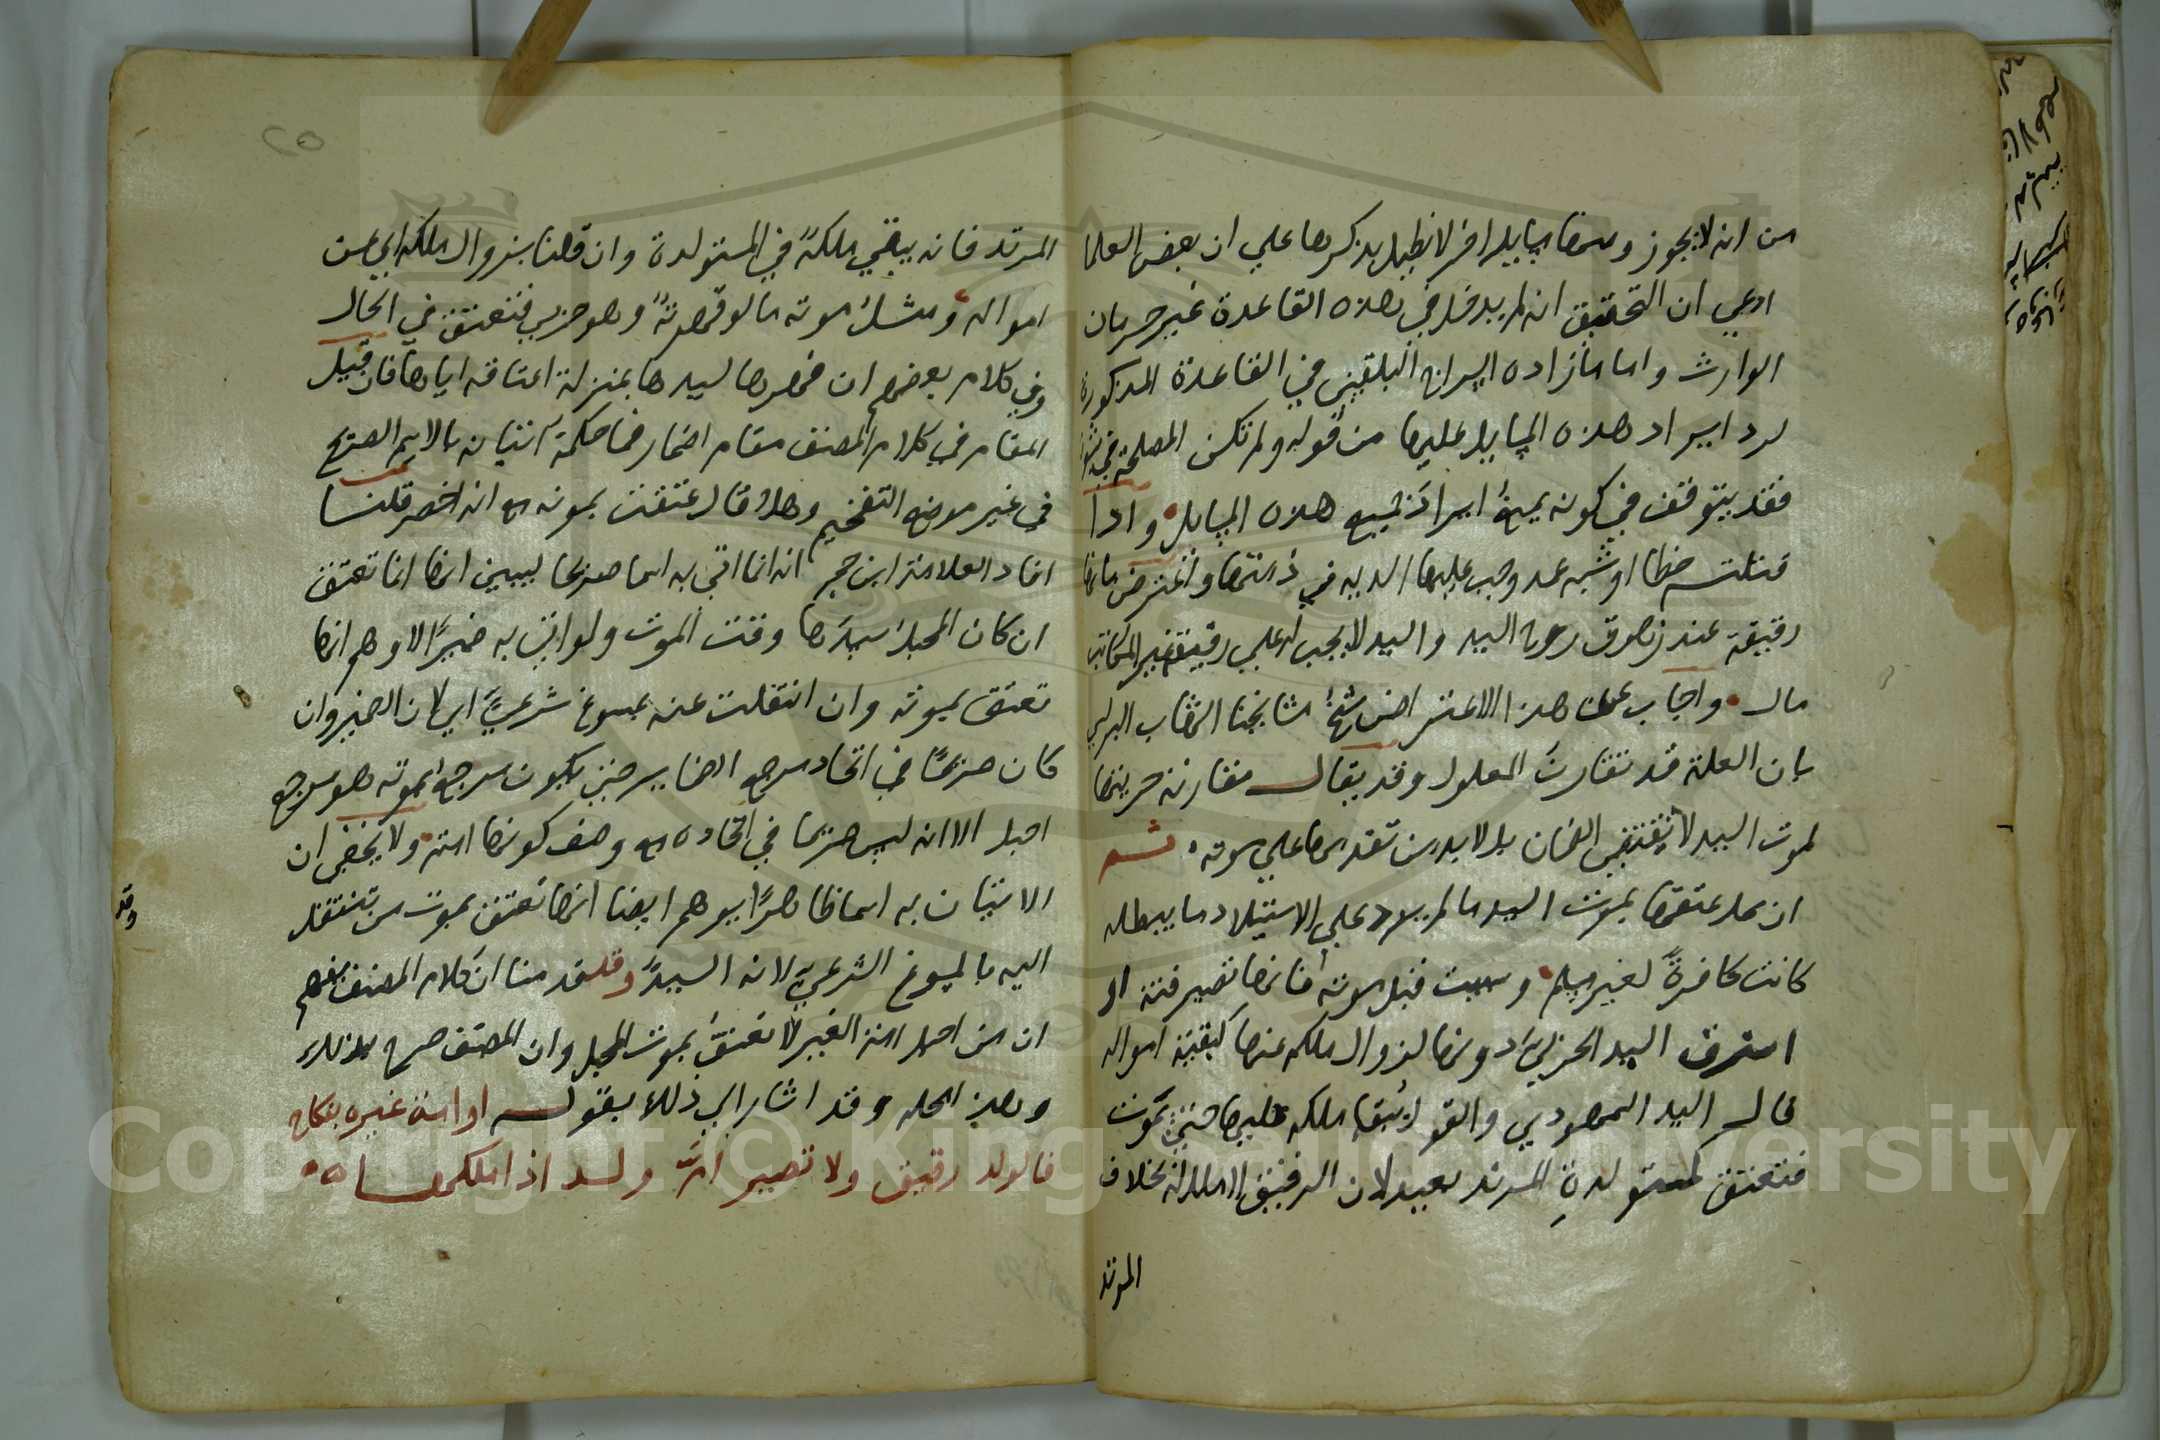 من انه لا يجوز ومنها مسايل اخر لا نطيل بذكرها علي ان بعض العلما
ادعي ان التحقيق انه لم يدخل في هذه القاعدة غير حرمان
الوارث واما ما زاده السراج البلقيني في القاعدة المذكورة
لرد ايراد هذه المسايل عليها من قوله ولم تكن المصلحة في
فقد يتوقف في كونه يمنع ايراد جميع هذه المسايل واذا
قتلته خطا او شبه عمد وجب عليها الدية في ذمتها واعترض بانها
رقيقة عند زهوق روح السيد والسيد لا يجب له علي رقيقه غير المكاتب
مال واجاب عن هذا الاعتراض شيخ مشايخنا الشهاب البرلسي
بان العلة قد تقارن المعلول وقد يقال مقارنة حريتها
لموت السيد لا يقتضي الضمان بل لا بد من تقدمها علي موته ثم
ان محل عتقها بموت السيد ما لم يرد علي الاستيلاد ما يبطله
كانت كافرة لغير مسلم وسبيت قبل موته فانها تصير قنة او
استرق السيد الحربي دونها لزوال ملكه عنها كبقية امواله
قال السيد السمهودي والقول ببقا ملكه عليها حتي يموت
فتعتق كمستولدة المرتد بعيد لان الرقيق لا ملك له بخلاف
المرتد
٢٥
المرتد فانه يبقي ملكه في المستولدة وان قلنا بزوال ملكه اي عن
امواله ومثل موته ما لو قهرته وهو حربي فتعتق في الحال
وفي كلام بعضهم ان قهرها لسيدها بمنزلة اعتاقه اياها فان قيل
المقام في كلام المصنف مقام اضمار فما حكمة اتيانه بالاسم الصريح
في غير موضع التفخيم وهلا قال عتقت بموته مع انه اخصر قلنا
افاد العلامة ابن حجر انه انما اتي به اسما صريحا ليبين انها انما تعتق
ان كان المحبل سيدها وقت الموت ولو اتي به ضميرا لاوهم انها
تعتق بموته وان انتقلت عنه بمسوغ شرعي اي لان الضمير وان
كان صريحا في اتحاد مرجع الضماير حتي يكون مرجع بموته هو مرجع
احبل الا انه ليس صريحا في اتحاده مع وصف كونها امته ولا يخفي ان
الاتيان به اسما ظاهرا يوهم ايضا انها تعتق بموت من تنتقل
اليه بالمسوغ الشرعي لانه السيد وقد قدمنا ان كلام المصنف يفهم
ان من احبل امة الغير لا تعتق بموت المحبل وان المصنف صرح بذلك
وبعد احله وقد اشار الي ذلك بقوله او امة غيره بنكاح
فالولد رقيق ولا تصير ام ولد اذا ملكها
وقد
Copyright © King Saud University